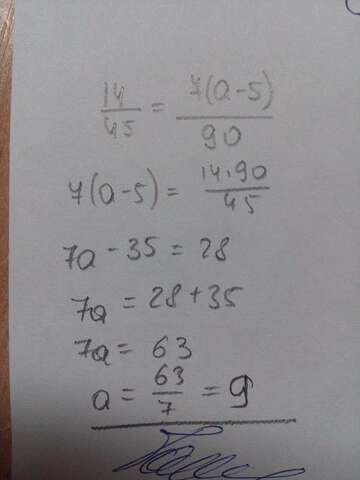 14/45 = 7(a-5)/90
7(a-5) = 14·90/45
7a - 35 = 28
7a = 28 + 35
7a = 63
a = 63/7 = 9